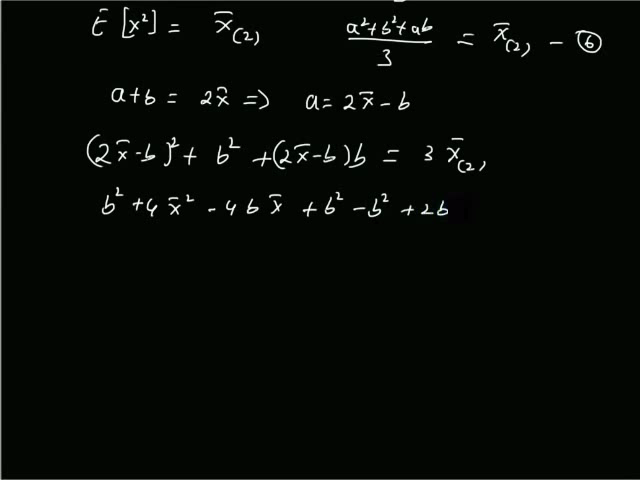 E [x²] = x̄₍₂₎ (a²+b²+ab)/3 = x̄₍₂₎ – ⑥
a+b = 2x̄ => a = 2x̄ – b
(2x̄–b)² + b² + (2x̄–b)b = 3 x̄₍₂₎
b² + 4x̄² – 4bx̄ + b² – b² + 2b